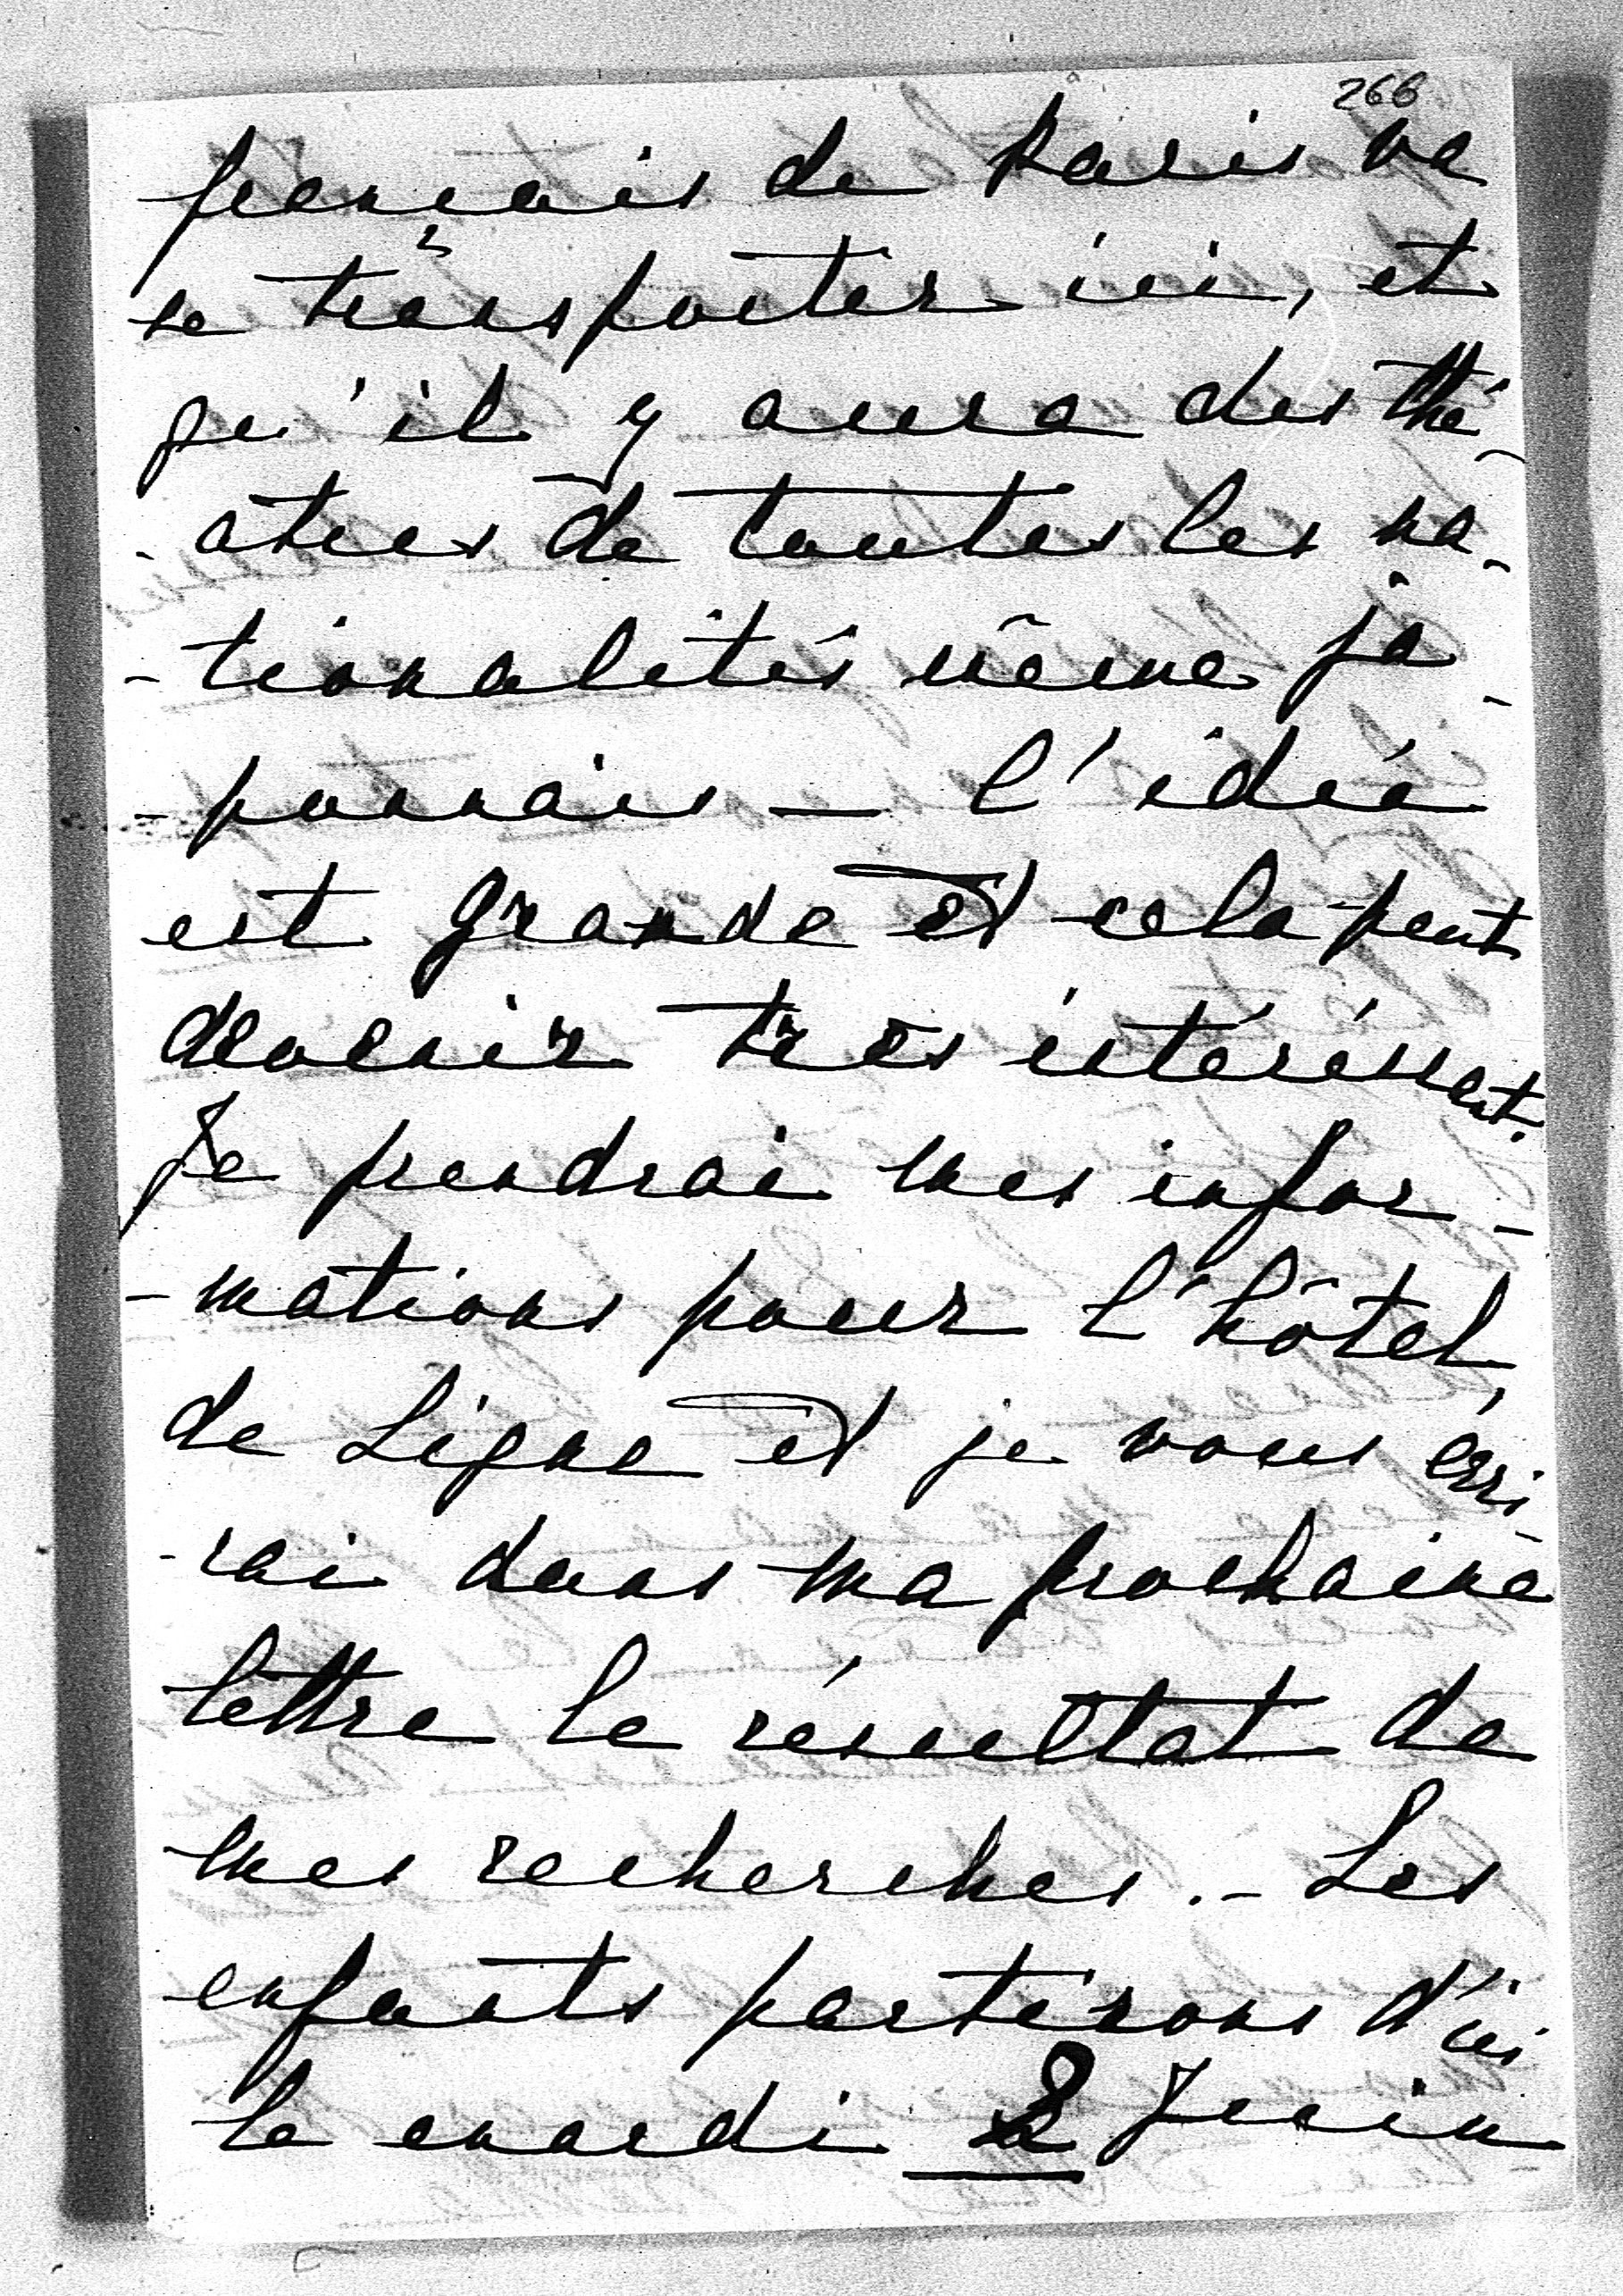 266
français de Paris va
se transporter ici, et
qu'il y aura des thé-
-âtres de toutes les na-
-tionalités même ja-
-ponnais — l'idée
est grande et cela peut
devenir très intéréssant.
Je prendrai mes infor-
-mations pour l'hôtel
de Ligne et je vous écri-
-rai dans ma prochaine
lettre le résultat de
mes recherches. — Les
enfants partirons d'ici
le mardi 2 Juin